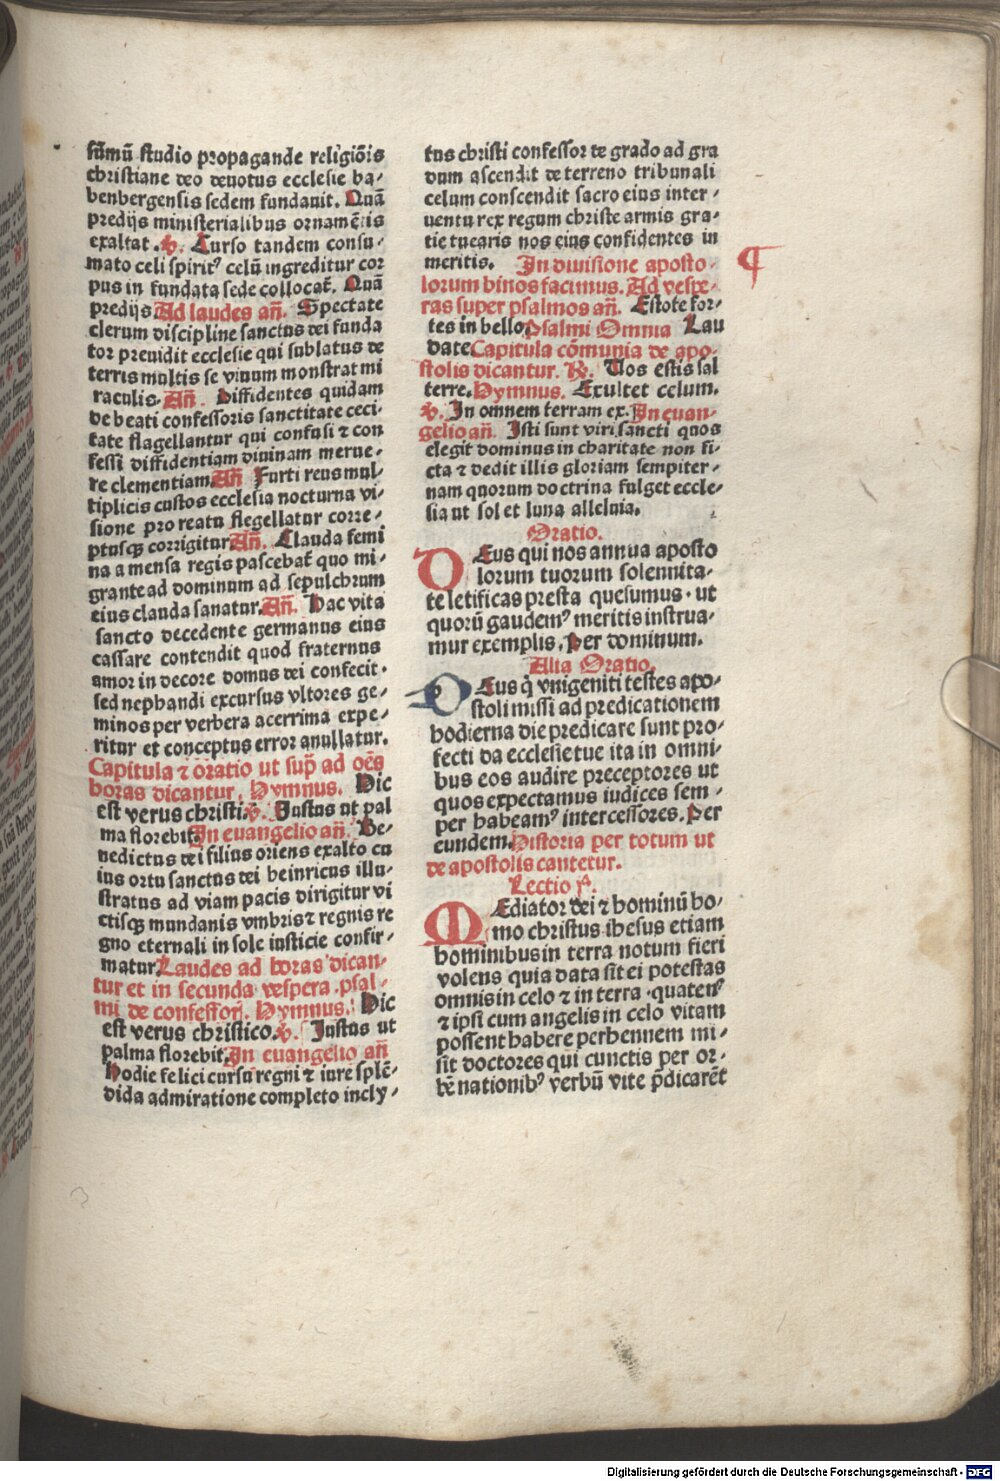 sūmū studio propagande religiōis
christiane deo deuotus ecclesie ba-
benbergensis sedem fundauit. Quā
predijs ministerialibus ornamētis
exaltat. ℣. Curso tandem consu-
mato celi spiritꝰ celū ingreditur cor
pus in fundata sede collocat̄. Quā
predijs Ad laudes añ. Spectate
clerum discipline sanctus dei funda
tor preuidit ecclesie qui sublatus de
terris multis se viuum monstrat mi
raculis. Añ. Diffidentes quidam
de beati confessoris sanctitate ceci-
tate flagellantur qui confusi ⁊ con
fessi diffidentiam diuinam merue-
re clementiam Añ Furti reus mul-
tiplicis custos ecclesia nocturna vi-
sione pro reatu flegellatur corre-
ptusqꝫ corrigitur Añ. Clauda femi
na a mensa regis pascebat̄ quo mi-
grante ad dominum ad sepulchrum
eius clauda sanatur. Añ. Hac vita
sancto decedente germanus eius
cassare contendit quod fraternus
amor in decore domus dei confecit.
sed nephandi excursus vltores ge-
minos per verbera acerrima expe-
ritur et conceptus error anullatur.
Capitula ⁊ oratio ut sup̄ ad oēs
horas dicantur. Hymnus. Hic
est verus christi ℣. Justus ut pal
ma florebit. In euangelio añ. Be-
nedictus dei filius oriens exalto cu
ius ortu sanctus dei heinricus illu-
stratus ad viam pacis dirigitur vi
ctisqꝫ mundanis vmbris ⁊ regnis re
gno eternali in sole iusticie confir-
matur. Laudes ad horas dican-
tur et in secunda vespera. psal-
mi de confessori. Hymnus. Hic
est verus christico. ℣. Justus ut
palma florebit. In euangelio añ
Hodie felici cursu regni ⁊ iure splē-
dida admiratione completo incly-
tus christi confessor de grado ad gra
dum ascendit de terreno tribunali
celum conscendit sacro eius inter-
uentu rex regum christe armis gra-
tie tuearis nos eius confidentes in
meritis. In diuisione aposto-
lorum binos facimus. Ad vespe-
ras super psalmos añ. Estote for-
tes in bello Psalmi Omnia Lau
date Capitula cōmunia de apo-
stolis dicantur. ℟. Uos estis sal
terre. Hymnus. Exultet celum.
℣. In omnem terram ex. In euan-
gelio añ. Isti sunt viri sancti quos
elegit dominus in charitate non fi-
cta ⁊ dedit illis gloriam sempiter-
nam quorum doctrina fulget eccle-
sia ut sol et luna alleluia.
Oratio.
DEus qui nos annua aposto
lorum tuorum solennita-
te letificas presta quesumus. ut
quorū gaudemꝰ meritis instrua-
mur exemplis. Per dominum.
Alia Oratio.
DEus q̇ vnigeniti testes apo-
stoli missi ad predicationem
hodierna die predicare sunt pro-
fecti da ecclesie tue ita in omni-
bus eos audire preceptores ut
quos expectamus iudices sem-
per habeamꝰ intercessores. Per
eundem. Historia per totum ut
de apostolis cantetur.
Lectio p̄.
MEdiator dei ⁊ hominū ho-
mo christus ihesus etiam
hominibus in terra notum fieri
volens quia data sit ei potestas
omnis in celo ⁊ in terra. quatenꝰ
⁊ ipsi cum angelis in celo vitam
possent habere perhennem mi-
sit doctores qui cunctis per or-
bē nationibꝰ verbū vite p̄dicarēt
Digitalisierung gefördert durch die Deutsche Forschungsgemeinschaft - DFG